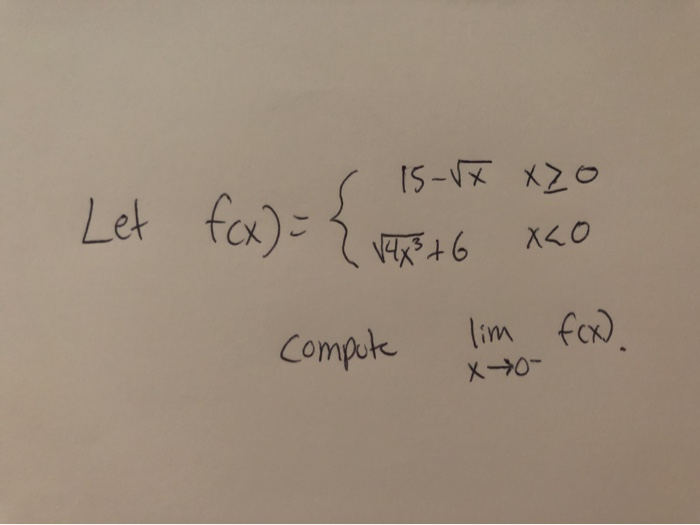 Let f(x) = { 15-√x x≥0
√4x³+6 x<0
compute lim f(x).
x→0⁻